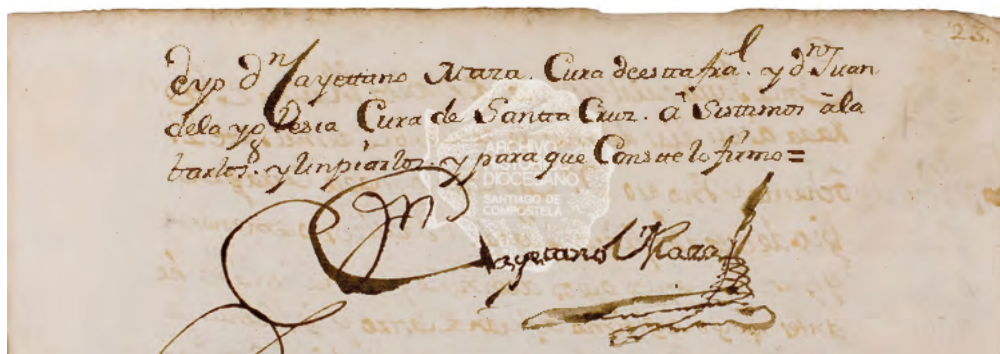 23.
è yo dn Cayettano Maza. Cura deestta fral. y dn Juan
dela yglesia Cura de Santta Cruz. â Sisttimos âla
barlos. y linpiarlos. y para que Consste lo firmo=
Cayetano Maza
ARCHIVO
HISTÓRICO
DIOCESANO
SANTIAGO DE
COMPOSTELA